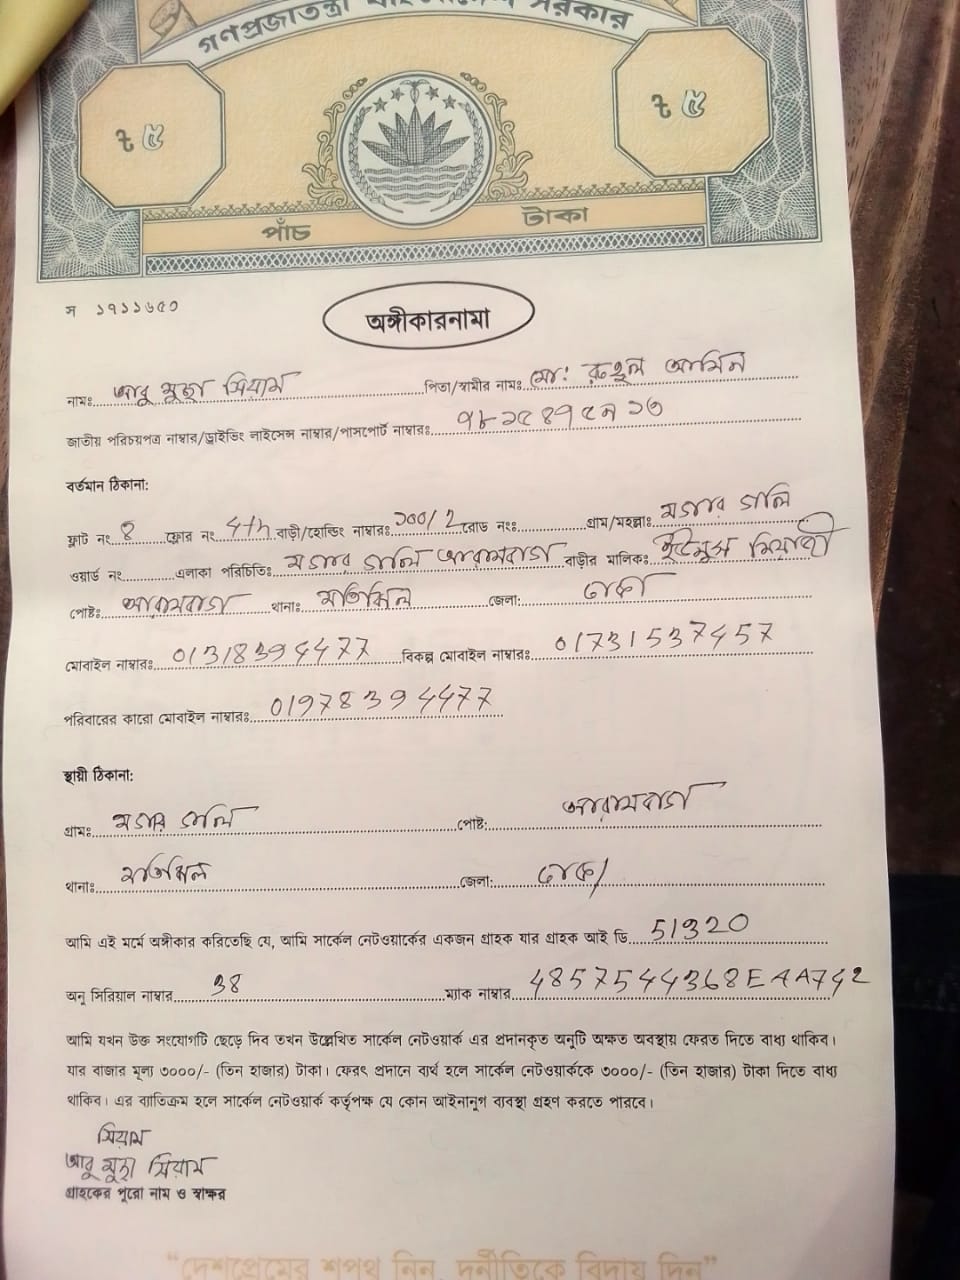 গণপ্রজাতন্ত্রী বাংলাদেশ সরকার
৳ ৫ ৳ ৫
পাঁচ টাকা
স ১৭১১৬৫৩
অঙ্গীকারনামা
নামঃ আবু মুছা সিয়াম পিতা/স্বামীর নামঃ মো: রুহুল আমিন
জাতীয় পরিচয়পত্র নাম্বার/ড্রাইভিং লাইসেন্স নাম্বার/পাসপোর্ট নাম্বারঃ
বর্তমান ঠিকানা:
ফ্লাট নং 8 ফ্লোর নং 4th বাড়ী/হোল্ডিং নাম্বারঃ ১০০/2 রোড নং গ্রাম/মহল্লাঃ গলি
ওয়ার্ড নং এলাকা পরিচিতিঃ গলি আরামবাগ বাড়ীর মালিক:
পোষ্টঃ আরামবাগ থানাঃ মতিঝিল জেলা: ঢাকা
মোবাইল নাম্বারঃ 01318394477 বিকল্প মোবাইল নাম্বারঃ 01731537457
পরিবারের কারো মোবাইল নাম্বারঃ 01978394477
স্থায়ী ঠিকানা:
গ্রামঃ গলি পোষ্ট: আরামবাগ
থানাঃ মতিঝিল জেলা: ঢাকা
আমি এই মর্মে অঙ্গীকার করিতেছি যে, আমি সার্কেল নেটওয়ার্কের একজন গ্রাহক যার গ্রাহক আই ডি 51320
অনু সিরিয়াল নাম্বার 38 ম্যাক নাম্বার 4857544368EAA742
আমি যখন উক্ত সংযোগটি ছেড়ে দিব তখন উল্লেখিত সার্কেল নেটওয়ার্ক এর প্রদানকৃত অনুটি অক্ষত অবস্থায় ফেরত দিতে বাধ্য থাকিব।
যার বাজার মূল্য ৩০০০/- (তিন হাজার) টাকা। ফেরৎ প্রদানে ব্যর্থ হলে সার্কেল নেটওয়ার্ককে ৩০০০/- (তিন হাজার) টাকা দিতে বাধ্য
থাকিব। এর ব্যতিক্রম হলে সার্কেল নেটওয়ার্ক কর্তৃপক্ষ যে কোন আইনানুগ ব্যবস্থা গ্রহণ করতে পারবে।
সিয়াম
আবু মুছা সিয়াম
গ্রাহকের পুরো নাম ও স্বাক্ষর
“দেশপ্রেমের শপথ নিন, দুর্নীতিকে বিদায় দিন”